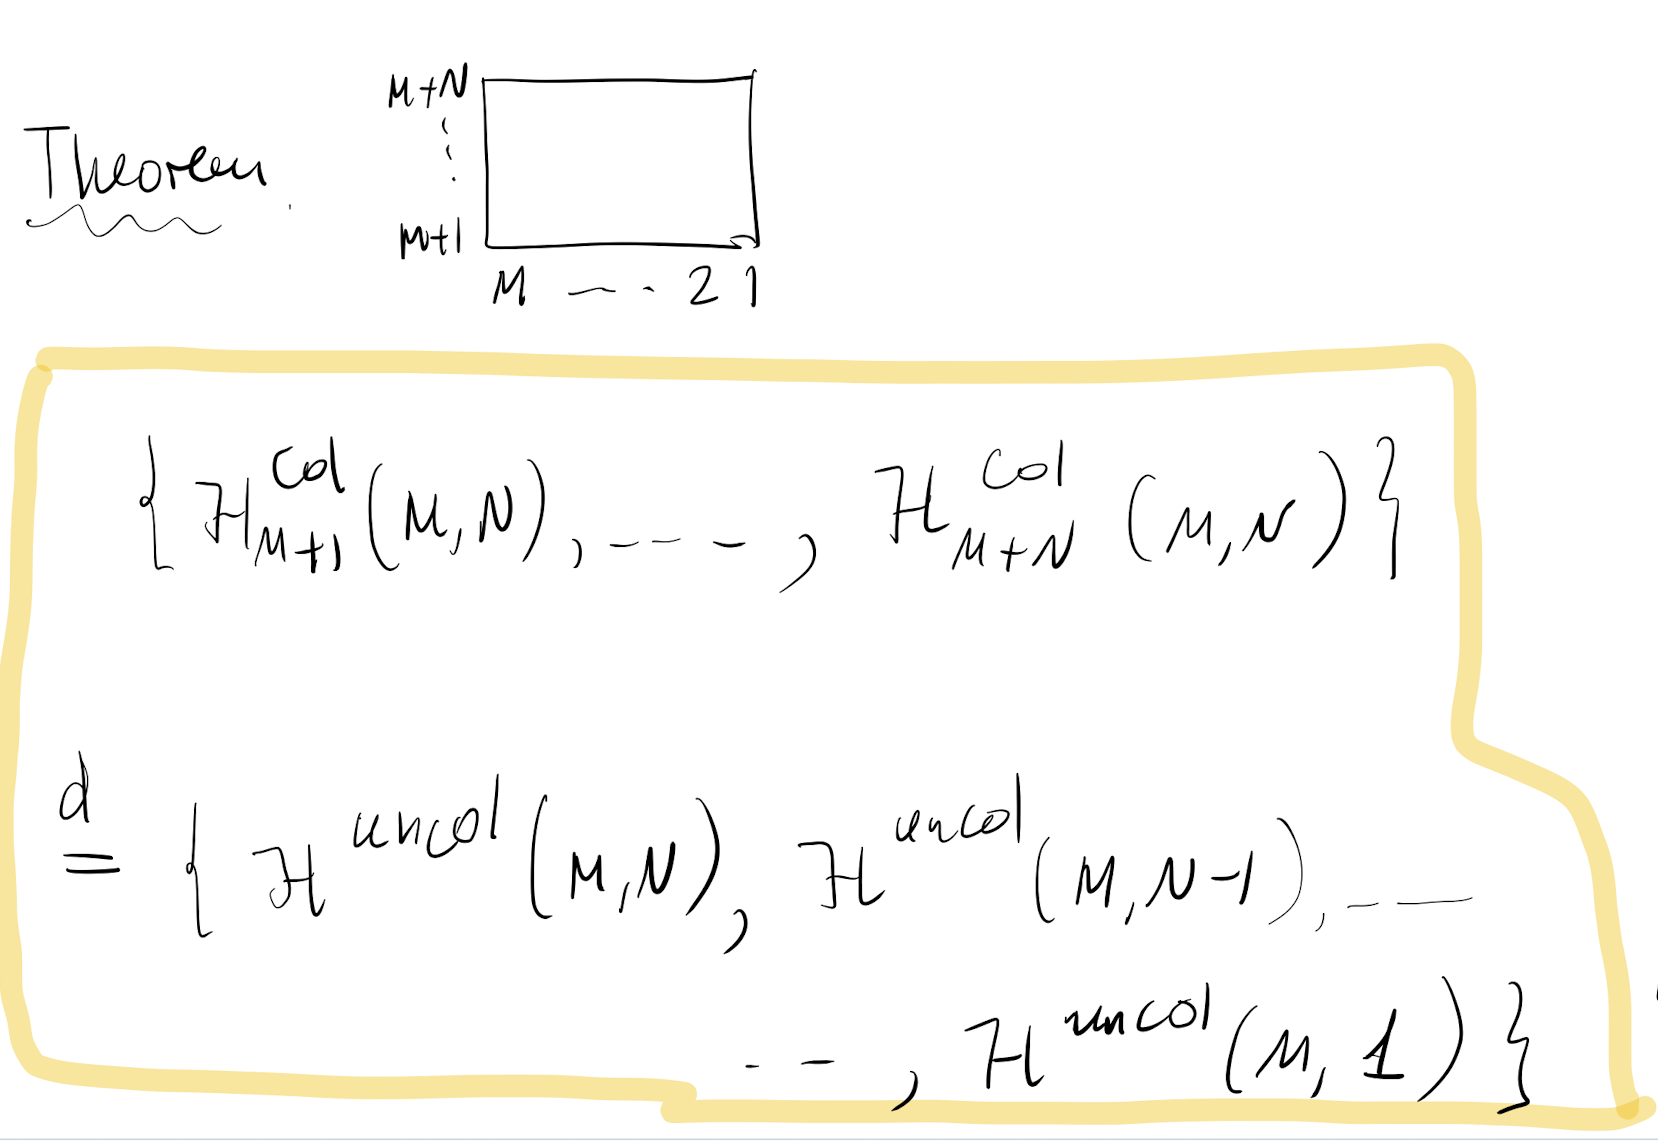 M+N
Theorem.
m+1
M - - . 2 1
{ H^{col}_{M+1} (M,N), - - - , H^{col}_{M+N} (M,N) }
d
= { H^{uncol} (M,N), H^{uncol} (M,N-1), - —
- - , H^{uncol} (M,1) }